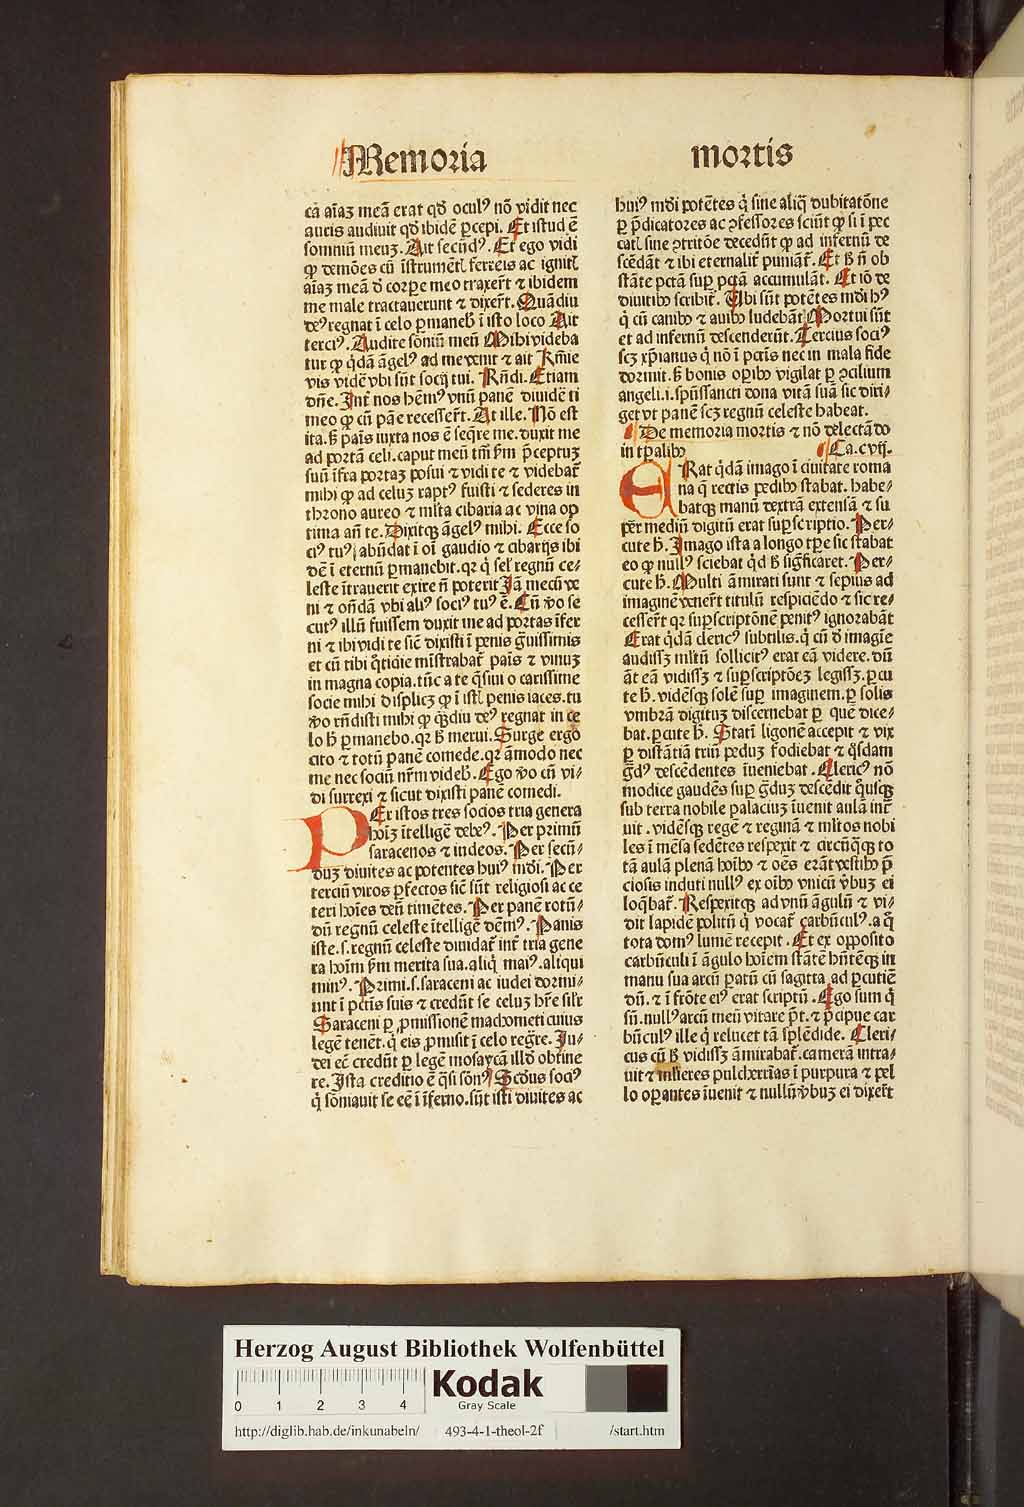 Memoria mortis
ca aīaꝫ meā erat qd̄ oculꝰ nō vidit nec
auris audiuit qd̄ ibidē ꝑcepi. Et istud ē
somniū meuꝫ. Ait secūdꝰ. Et ego vidi
ꝙ demōes cū īstrumētꝭ ferreis ac ignitꝭ
aīaꝫ meā d̄ corꝑe meo traxer̄t ⁊ ibidem
me male tractauerunt ⁊ dixer̄t. Quādiu
deꝰ regnat ī celo ꝑmaneb̄ ī isto loco Ait
terciꝰ. Audite sōniū meū Mihi videba
tur ꝙ qͥdā āgelꝰ ad me venit ⁊ ait Amīe
vis vidē vbi sūt socij tui. Rn̄di. Etiam
dn̄e. Inf̄ nos hēmꝰ vnū panē diuidē ti
meo ꝙ cū pāe recesser̄t. At ille. Nō est
ita. s̄ pāis iuxta nos ē seq̄re me. duxit me
ad portā celi. caput meū tm̄ ẜm p̄ceptuꝫ
suū īfra portaꝫ posui ⁊ vidi te ⁊ videbat̄
mihi ꝙ ad celuꝫ raptꝰ fuisti ⁊ sederes in
throno aureo ⁊ ml̄ta cibaria ac vina op
tima an̄ te. Dixitqꝫ āgelꝰ mihi. Ecce so
ciꝰ tuꝰ abūdat ī oī gaudio ⁊ cibarijs ibi
dē ī eternū ꝑmanebit. qꝛ qͥ sel̓ regnū ce⸗
leste ītrauerit exire nō poterit Jā mecū ve
ni ⁊ on̄dā vbi aliꝰ sociꝰ tuꝰ ē. Cū v̄o se
cutꝰ illū fuissem duxit me ad portas īfer
ni ⁊ ibi vidi te sic̄ dixisti ī penis gͣuissimis
et cū tibi qͦtidie mīstrabat̄ pāis ⁊ vinuꝫ
in magna copia. tūc a te q̄siui o carissime
socie mihi displicꝫ ꝙ ī istꝭ penis iaces. tu
v̄o rn̄disti mihi ꝙ qͣdiu deꝰ regnat in ce
lo h̄ ꝑmanebo. qꝛ h̄ merui. Surge ergo
cito ⁊ totū panē comede. qꝛ āmodo nec
me nec sociū nr̄m videb̄. Ego v̄o cū vi⸗
di surrexi ⁊ sicut dixisti panē comedi.
PEr istos tres socios tria genera
hoīꝫ ītelligē debeꝰ. Per primū
saracenos ⁊ iudeos. Per secū⸗
duꝫ diuites ac potentes huiꝰ mūdi. Per
terciū viros ꝑfectos sic̄ sūt religiosi ac ce
teri hoīes deū timētes. Per panē rotū⸗
dū regnū celeste ītelligē dēmꝰ. Panis
iste .s. regnū celeste diuidat̄ int̄ tria gene
ra hoīm ẜm merita sua. aliqͥ maiꝰ. aliqui
minꝰ. Primi .s. saraceni ac iudei dormi⸗
unt ī pctīs suis ⁊ credūt se celuꝫ hr̄e sil̓r
Saraceni ꝑ ꝓmissionē machometi cuius
legē tenēt. qͥ eis ꝓmisit ī celo regr̄e. Ju⸗
dei ec̄ credūt ꝑ legē mosaycā illd̄ obtine
re. Ista creditio ē q̄si sōnꝰ Scd̄us sociꝰ
qͥ sōniauit se eē ī īferno. sūt isti diuites ac
huiꝰ mūdi potētes qͥ sine aliqͣ dubitatōne
ꝑ p̄dicatores ac ꝯfessores sciūt ꝙ si ī pec
catꝭ sine ꝯtritōe decedūt ꝙ ad infernū de
scēdāt ⁊ ibi eternalit̄ puniāt̄. Et h̄ nō ob
stāte pctā suꝑ pctā accumulāt. Et iō de
diuitibꝰ scribit̄. Vbi sūt potētes mūdi hꝰ
qͥ cū canibꝰ ⁊ auibꝰ ludebāt Mortui sūt
et ad infernū descenderūt. Tercius sociꝰ
scꝫ xp̄ianus qͥ nō ī pctīs nec in mala fide
dormit. s̄ bonis oꝑibꝰ vigilat ꝑ ꝯsilium
angeli .i. spūssancti dona vitā suā sic diri⸗
get vt panē scꝫ regnū celeste habeat.
De memoria mortis ⁊ nō delectādo
in tꝑalibꝰ Ca. cvij.
ERat qͥdā imago ī ciuitate roma
na q̄ rectis pedibꝰ stabat. habe⸗
batqꝫ manū dextrā extensā ⁊ su
per mediū digitū erat suꝑscriptio. Per⸗
cute h̄. Imago ista a longo tꝑe sic stabat
eo ꝙ nullꝰ sciebat qͥd h̄ sigͥficaret. Per⸗
cute h̄. Multi āmirati sunt ⁊ sepius ad
imaginē vener̄t titulū respiciēdo ⁊ sic re⸗
cesser̄t qꝛ suꝑscriptōnē penitꝰ ignorabāt
Erat qͥdā clericꝰ subtilis. qͥ cū d̄ imagīe
audissꝫ ml̄tū sollicitꝰ erat eā videre. dū
āt eā vidissꝫ ⁊ suꝑscriptōeꝫ legissꝫ. ꝑcu
te h̄. vidēsqꝫ solē suꝑ imaginem. ꝑ solis
vmbrā digituꝫ discernebat ꝑ quē dice⸗
bat. ꝑcute h̄. Statī ligonē accepit ⁊ vix
ꝑ distātiā triū peduꝫ fodiebat ⁊ qͦsdam
gͣdꝰ descēdentes īueniebat. Clericꝰ nō
modice gaudēs suꝑ gͣduꝫ descēdit qͦusqꝫ
sub terra nobile palaciuꝫ īuenit aulā int̄
uit. vidēsqꝫ regē ⁊ reginā ⁊ ml̄tos nobi
les ī mēsa sedētes respexit ⁊ circūqͣqꝫ to
tā aulā plenā hoībꝰ ⁊ oēs erāt vestibꝰ p̄
ciosis induti nullꝰ ex oībꝰ vnicū v̄buꝫ ei
loqͣbat̄. Respexitqꝫ ad vnū āgulū ⁊ vi⸗
dit lapidē politū qͥ vocat̄ carbūculꝰ. a qͦ
tota domꝰ lumē recepit. Et ex opposito
carbūculi ī āgulo hoīem stātē hn̄tēqꝫ in
manu sua arcū ꝑatū cū sagitta ad ꝑcutiē
dū. ⁊ ī frōte eiꝰ erat scriptū. Ego sum qͥ
sū. nullꝰ arcū meū vitare pt̄. ⁊ p̄cipue car
būculꝰ ille qͥ relucet tā splēdide. Cleri⸗
cus cū h̄ vidissꝫ āmirabat̄. camerā intra⸗
uit ⁊ ml̓ieres pulcherrīas ī purpura ⁊ pel
lo oꝑantes īuenit ⁊ nullū v̄buꝫ ei dixer̄t
Herzog August Bibliothek Wolfenbüttel
0 1 2 3 4
Kodak
Gray Scale
http://diglib.hab.de/inkunabeln/ 493-4-1-theol-2f /start.htm